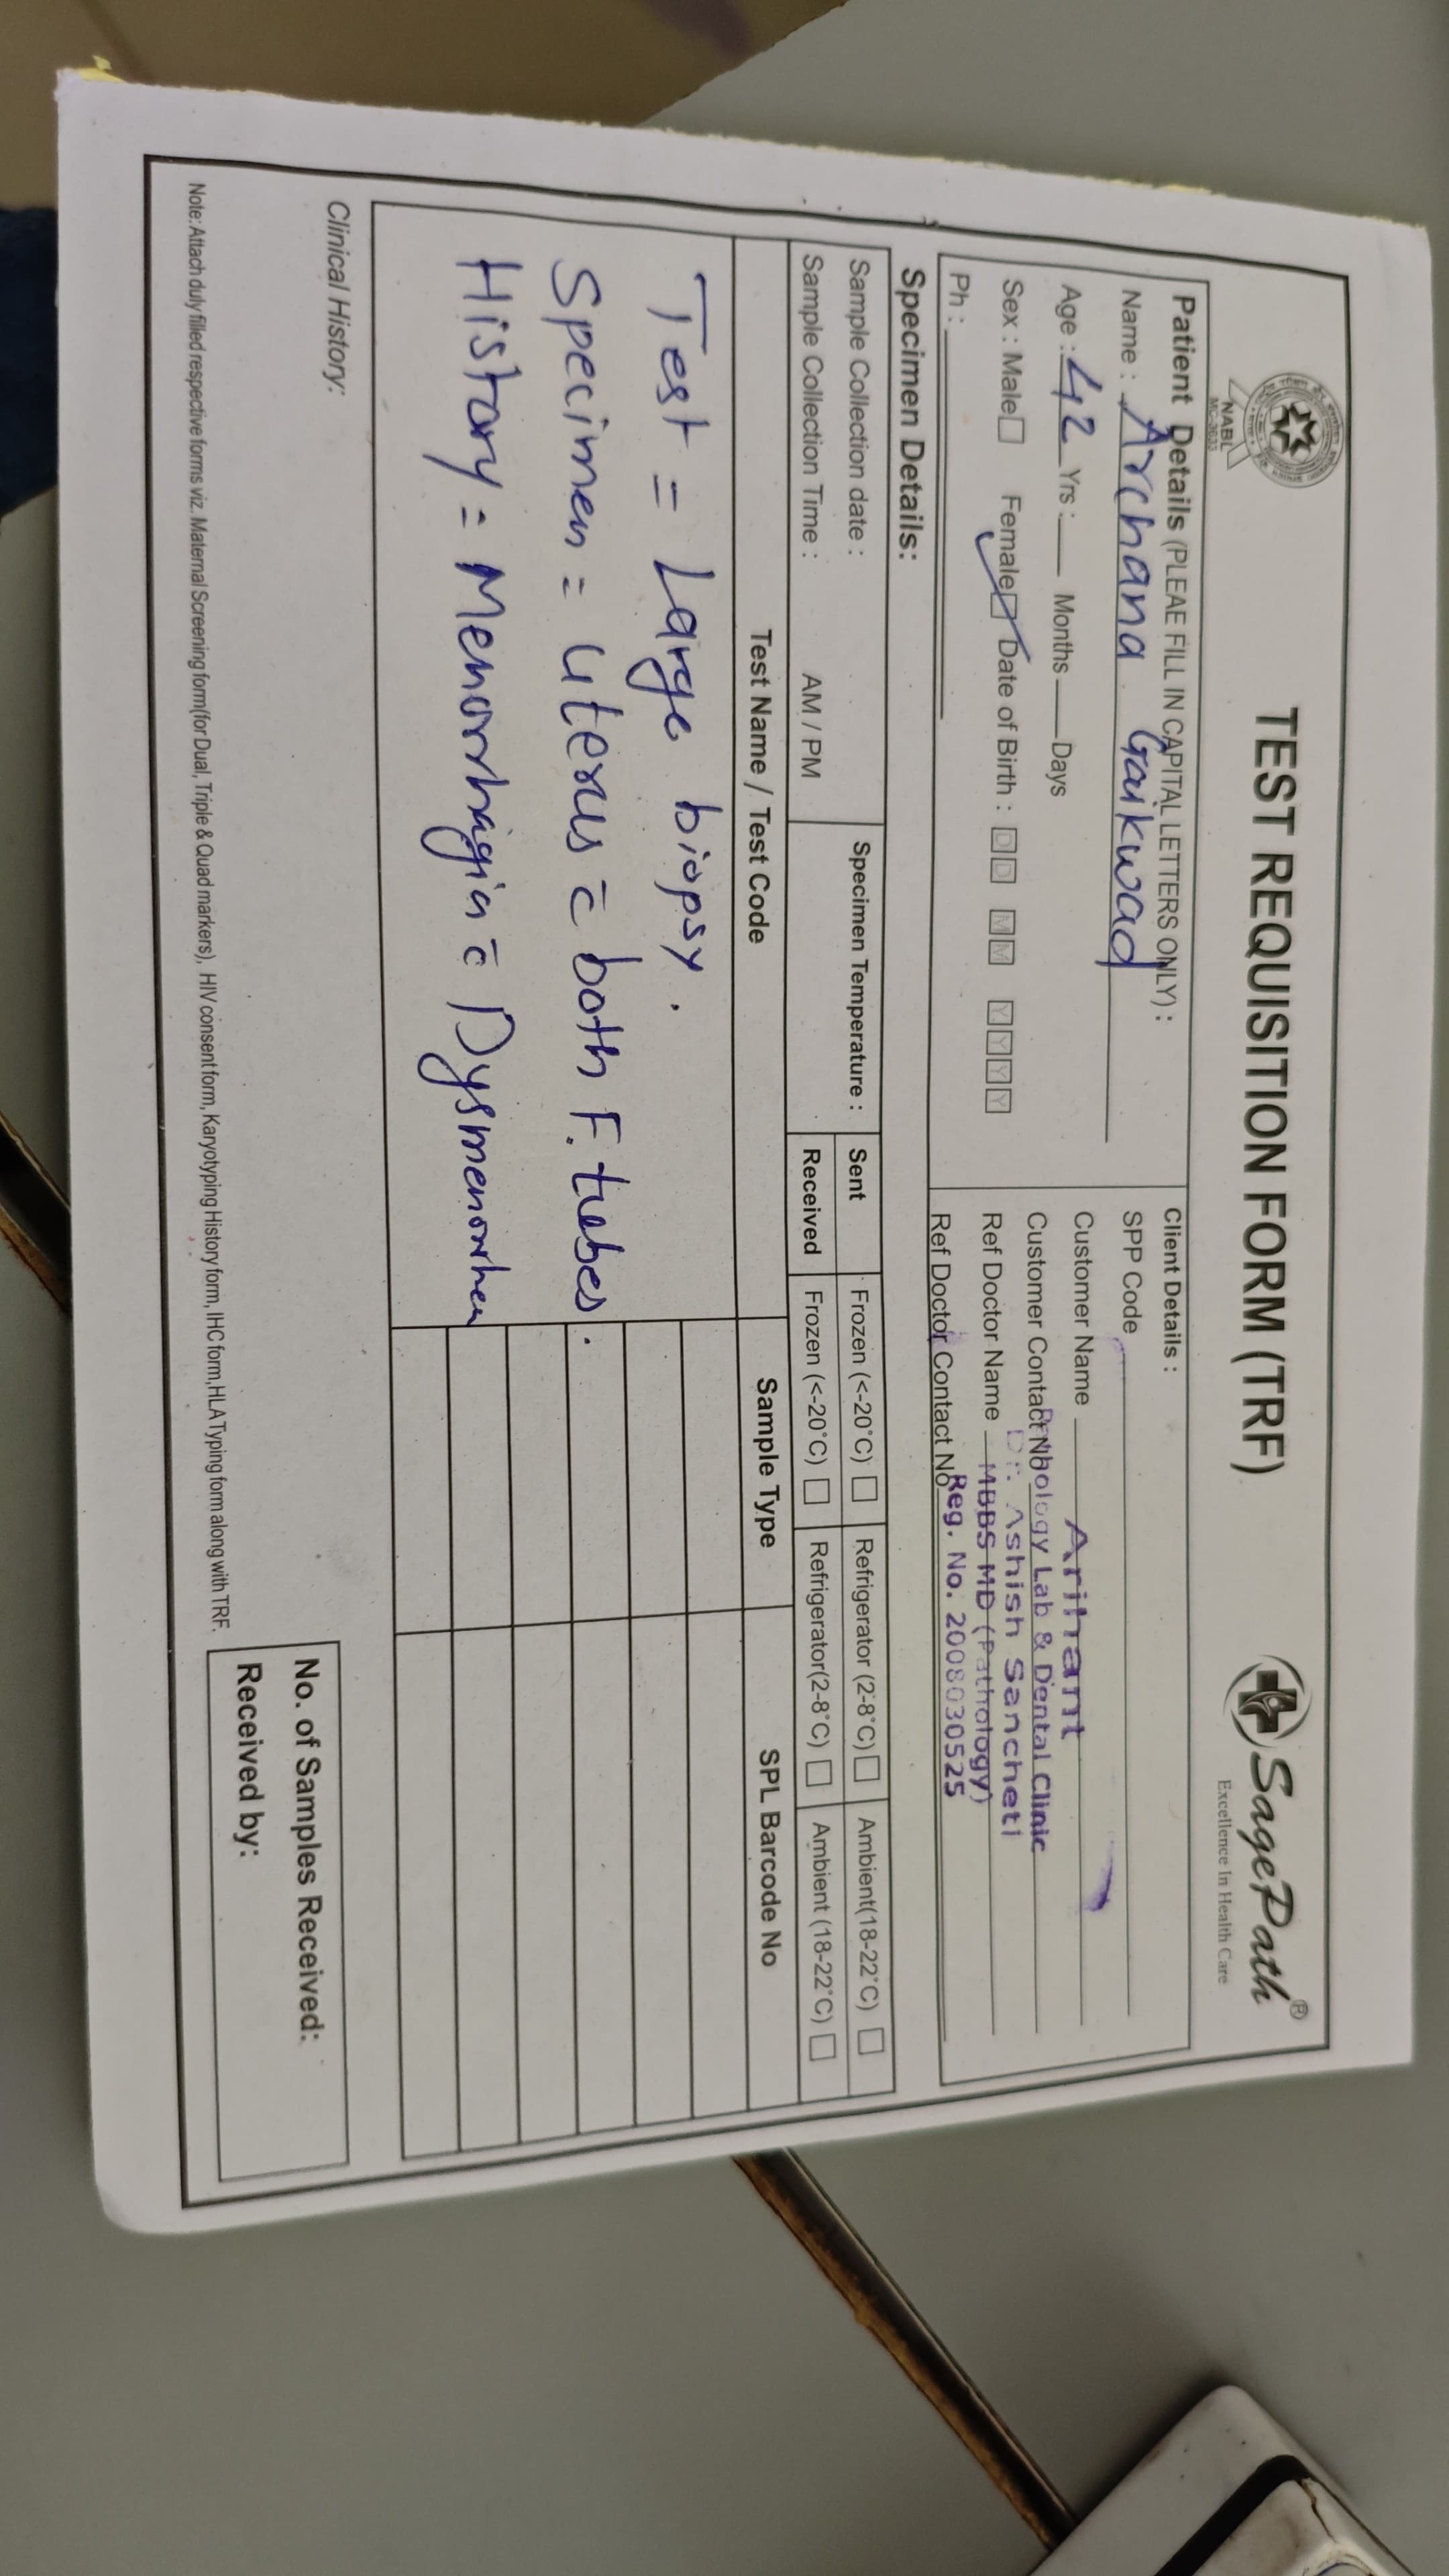 TEST REQUISITION FORM (TRF)
SagePath®
Excellence In Health Care
NABL
Patient Details (PLEAE FILL IN CAPITAL LETTERS ONLY) :
Name : Archana Gaikwad
Age : 42 Yrs : Months Days
Sex : Male Female Date of Birth : DD MM YYYY
Ph :
Client Details :
SPP Code
Customer Name Arihant
Customer Contact No
Pathology Lab & Dental Clinic
Dr. Ashish Sancheti
Ref Doctor Name MBBS MD (Pathology)
Ref Doctor Contact No
Reg. No. 2008030525
Specimen Details:
Sample Collection date : Specimen Temperature : Sent Frozen (<-20°C) Refrigerator (2-8°C) Ambient(18-22°C)
Sample Collection Time : AM / PM Received Frozen (<-20°C) Refrigerator(2-8°C) Ambient (18-22°C)
Test Name / Test Code Sample Type SPL Barcode No
Test = Large biopsy.
Specimen = Uterus c̄ both F. tubes.
History = Menorrhagia c̄
Clinical History:
No. of Samples Received:
Received by:
Note: Attach duly filled respective forms viz. Maternal Screening form(for Dual, Triple & Quad markers), HIV consent form, Karyotyping History form, IHC form, HLA Typing form along with TRF.